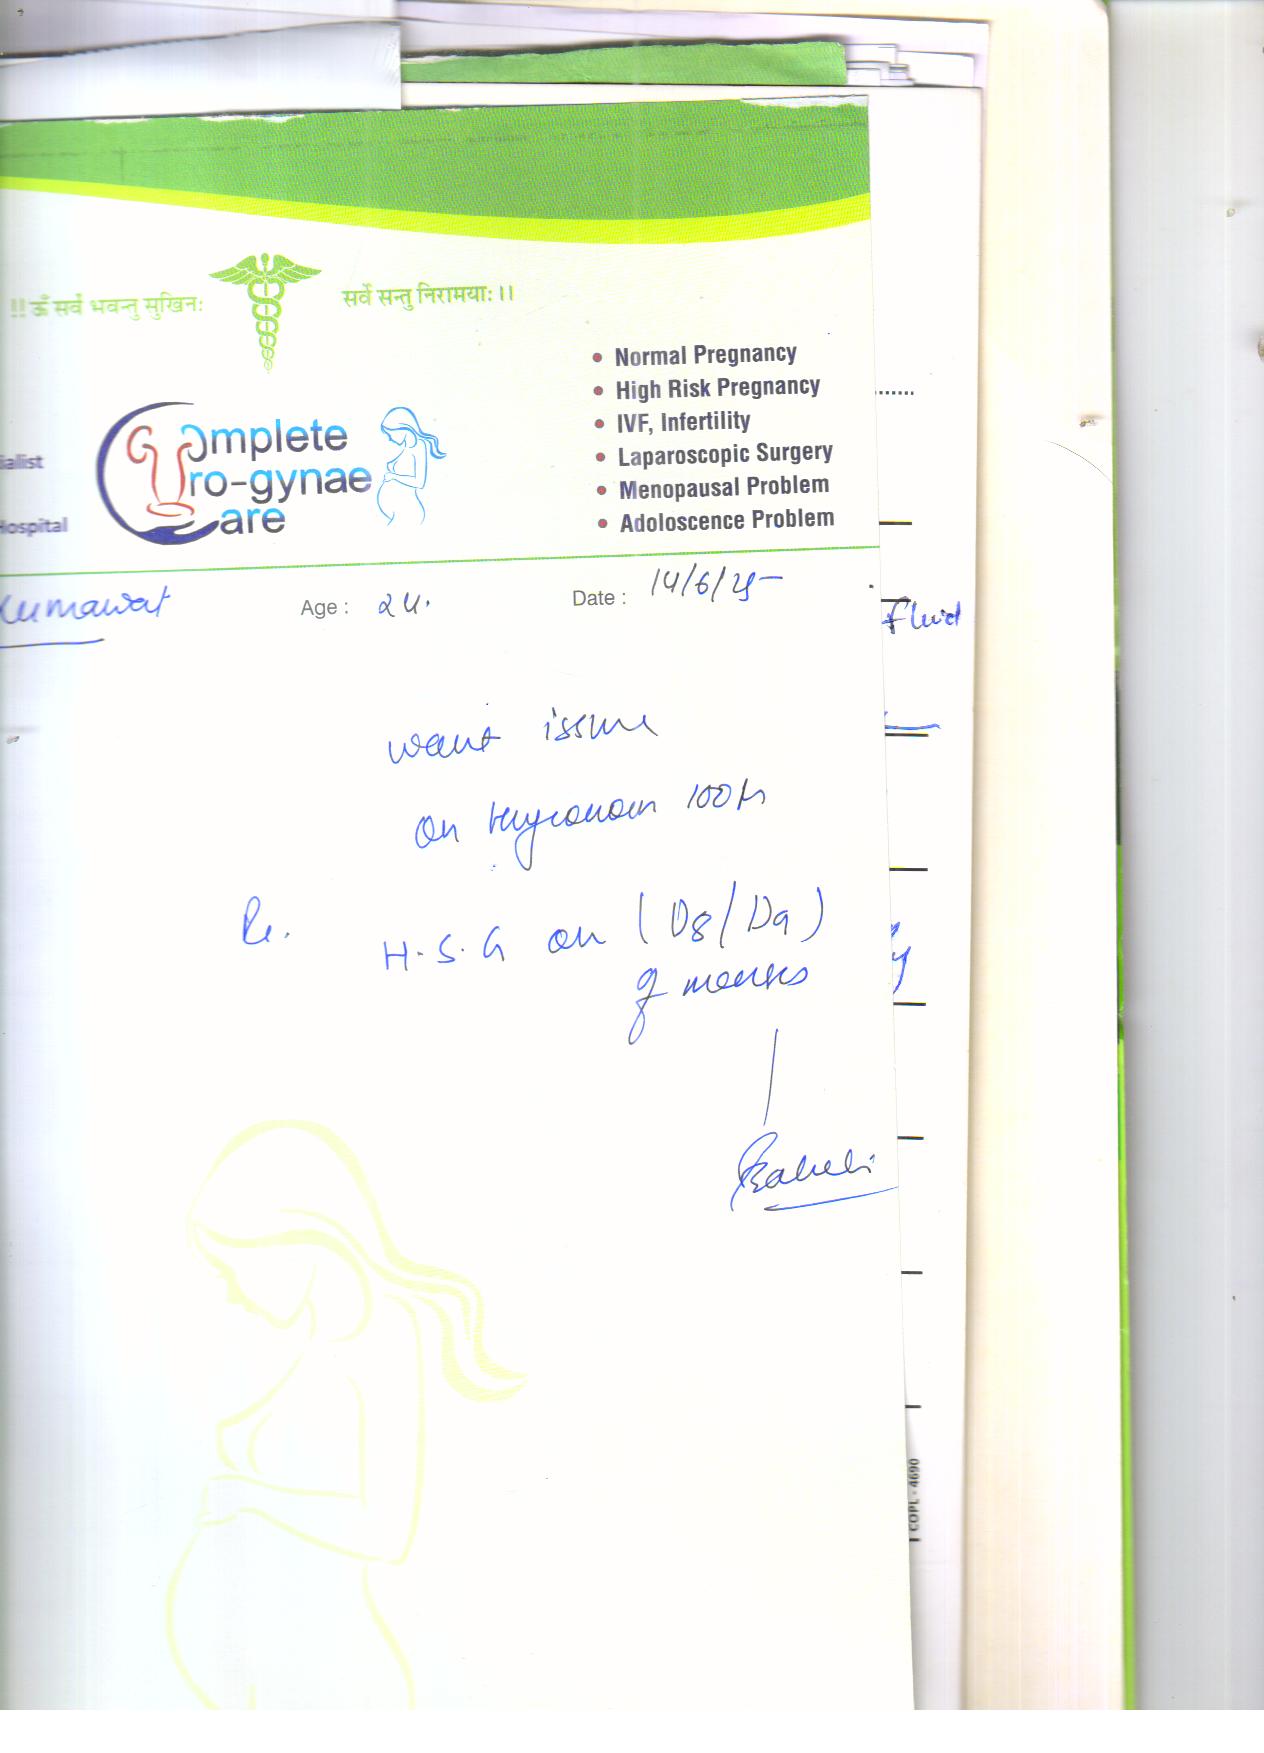 !! ॐ सर्वे भवन्तु सुखिनः सर्वे सन्तु निरामयाः ।।
Complete
Uro-gynae
Care
ialist
Hospital
• Normal Pregnancy
• High Risk Pregnancy
• IVF, Infertility
• Laparoscopic Surgery
• Menopausal Problem
• Adoloscence Problem
Kumawat Age : 24. Date : 14/6/25
Fluid
want issue
on 100
H.S.G on (D8/D9)
of menses
COPL - 4690